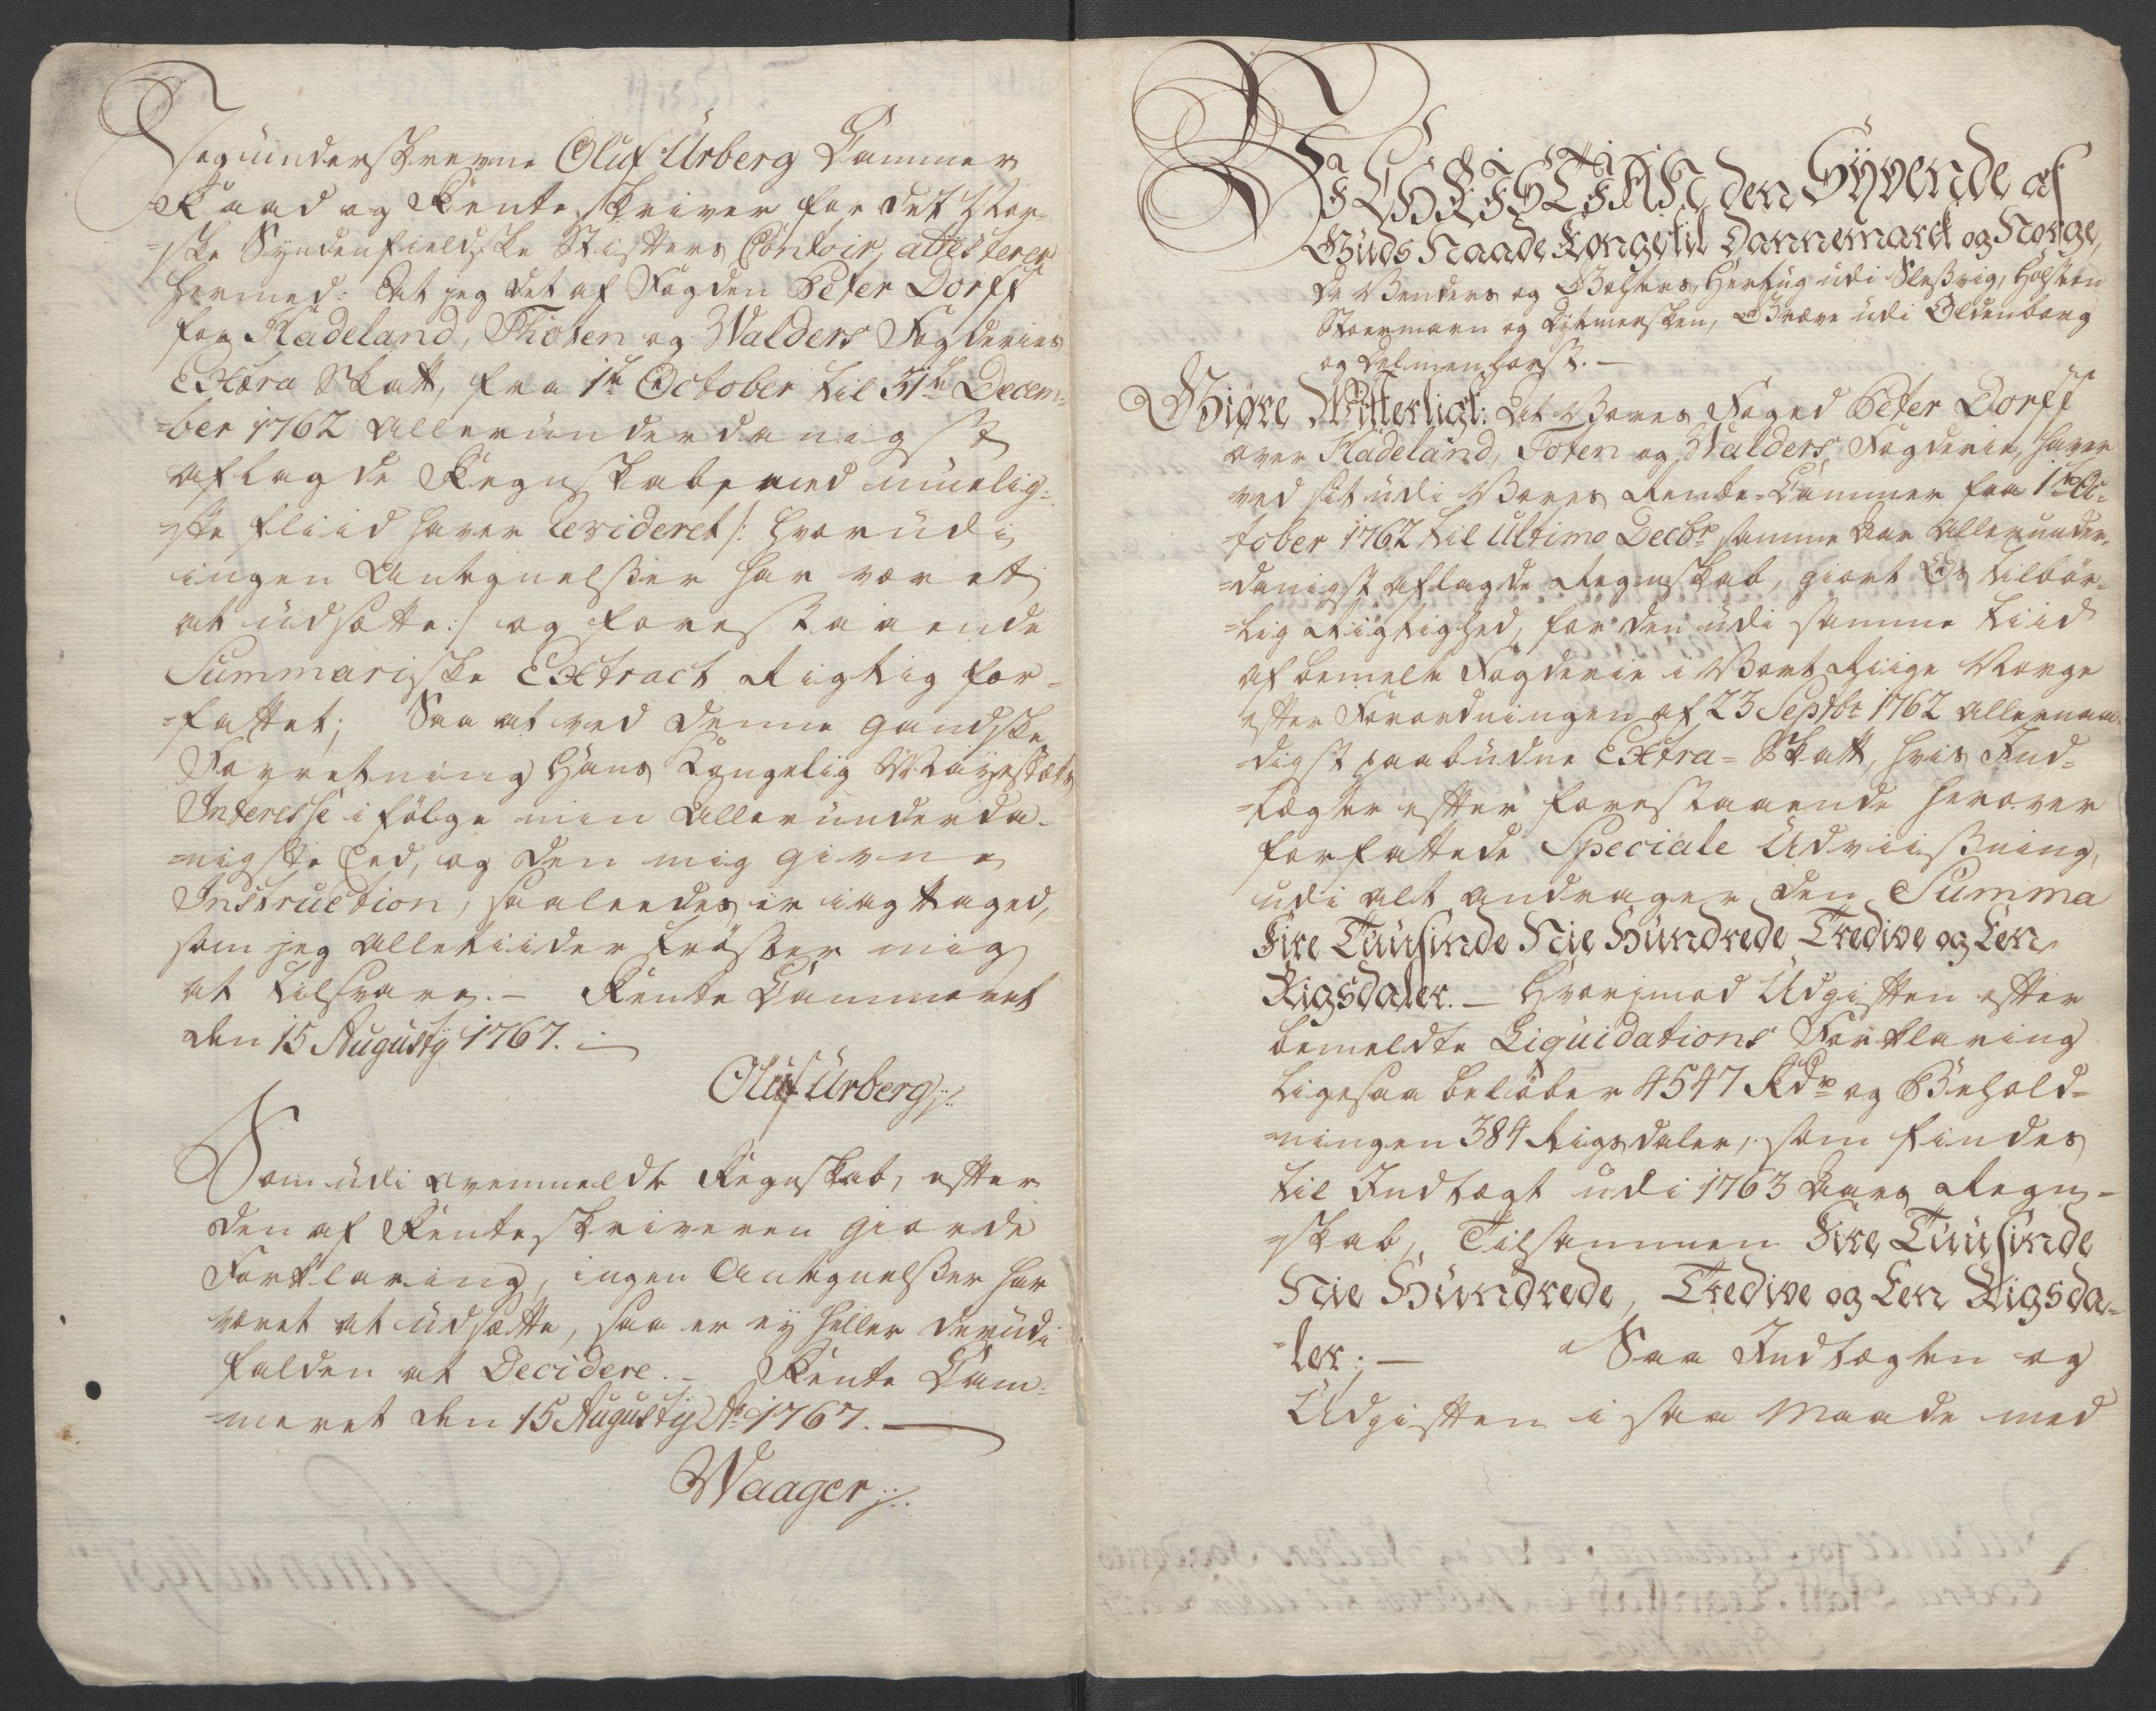 Jeg underskrevne Oluf Ürberg Cammer
Raad og Rente skriver for det Nor-
-ske Syndenfieldske Stifters Contoir, attesterer
hermed: At jeg det af Fogden Peter Dorff
for Hadeland, Thoten og Walders Fogderies
Extra Skatt, fra 1te October til 31te Decem-
-ber 1762 allerunderdanigst
aflagde Regnskab, med muelig-
-ste fliid haver Revideret /: hvorudi
ingen Antegnelßer har været
at udsætte :/ og forestaaende
Summariske Extract rigtig for-
-fattet; Saa at ved denne gandske
Forretning Hans Kongelig Mayestæts
Interesse i følge min allerunderda-
-nigste Eed, og den mig givne
Instruction, saaleedes er iagttaged,
som jeg alletiider trøster mig
at tilsvare. - Rente Cammeret
den 15 Augusty 1767. -
Oluf Ürberg
Som udi ovenmeldte Regnskab, efter
den af Renteskriveren giorde
Forklaring, ingen Antegnelßer har
været at udsætte, saa er ey heller derudi
falden at Decidere. - Rente Cam-
-meret den 15 Augustij Ao 1767. -
Waager
Wi CHRISTIAN den Syvende af
Guds Naade Konge til Dannemarck og Norge,
De Wenders og Gothers, Hertug udi Sleßvig, Holsten
Stormarn og Dytmersken, Greve udi Oldenborg
og Delmenhorst. -
Giøre Witterligt: At Vores Foged Peter Dorff
over Hadeland, Toten og Walders Fogderie, haver
ved sit udi Vores Rente-Cammer fra 1te Oc-
-tober 1762 til ultimo Decbr samme Aar allerunder-
-danigst aflagde Regnskab, giort Os tilbør-
-lig Rigtighed, for den udi samme tiid
af bemelte Fogderie i Vort Riige Norge
efter Forordningen af 23 Septbr 1762 allernaa-
-digst paabudne Extra-Skatt, hvis Ind-
-tægter efter forestaaende herover
forfattede Speciale Udviißning,
udi alt andrager den Summa
Fire Tuusinde Nie Hundrede Tredive og Een
Rigsdaler. - Hvorimod Udgiften efter
bemeldte Liquidations Forklaring
ligesaa beløber 4547 Rdr og Behold-
-ningen 384 Rigsdaler, som findes
til Indtægt udi 1763 Aars Regn-
-skab, Tilsammen Fire Tuusinde
Nie Hundrede, Tredive og Een Rigsda-
-ler; - Saa Indtægten og
Udgiften i saa maade med